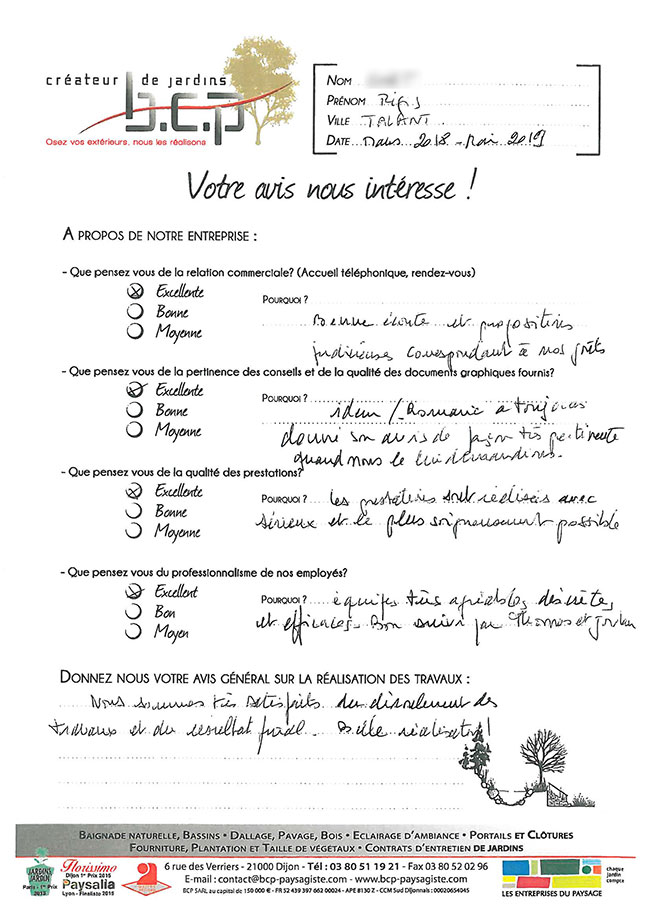 créateur de jardins
b.c.p
Osez vos extérieurs, nous les réalisons
NOM
PRÉNOM
VILLE TALANT
DATE Mars 2018 - Mai 2019
Votre avis nous intéresse !
A PROPOS DE NOTRE ENTREPRISE :
- Que pensez vous de la relation commerciale? (Accueil téléphonique, rendez-vous)
Excellente
Bonne
Moyenne
POURQUOI ?
Bonne écoute et propositions
judicieuses correspondant à nos goûts
- Que pensez vous de la pertinence des conseils et de la qualité des documents graphiques fournis?
Excellente
Bonne
Moyenne
POURQUOI ? idem / Romaric a toujours
donné son avis de façon très pertinente
quand nous le lui demandions.
- Que pensez vous de la qualité des prestations?
Excellente
Bonne
Moyenne
POURQUOI ? Les prestations sont réalisées avec
sérieux et le plus soigneusement possible
- Que pensez vous du professionnalisme de nos employés?
Excellent
Bon
Moyen
POURQUOI ? équipes très agréables, discrètes,
et efficaces. Bon suivi par Thomas et Jordan
DONNEZ NOUS VOTRE AVIS GÉNÉRAL SUR LA RÉALISATION DES TRAVAUX :
Nous sommes très satisfaits du déroulement des
travaux et du résultat final. Belle réalisation !
BAIGNADE NATURELLE, BASSINS • DALLAGE, PAVAGE, BOIS • ECLAIRAGE D'AMBIANCE • PORTAILS ET CLÔTURES
FOURNITURE, PLANTATION ET TAILLE DE VÉGETAUX • CONTRATS D'ENTRETIEN DE JARDINS
JARDINS JARDIN
Paris - 1er Prix
2013
Florissimo
Dijon 1er Prix 2015
Paysalia
Lyon - Finaliste 2015
6 rue des Verriers - 21000 Dijon - Tél : 03 80 51 19 21 - Fax 03 80 52 02 96
E-mail : contact@bcp-paysagiste.com - www.bcp-paysagiste.com
BCP SARL au capital de 150 000 € - FR 52 439 397 662 00024 - APE 8130 Z - CCM Sud Dijonnais : 00020654045
chaque
jardin
compte
LES ENTREPRISES DU PAYSAGE